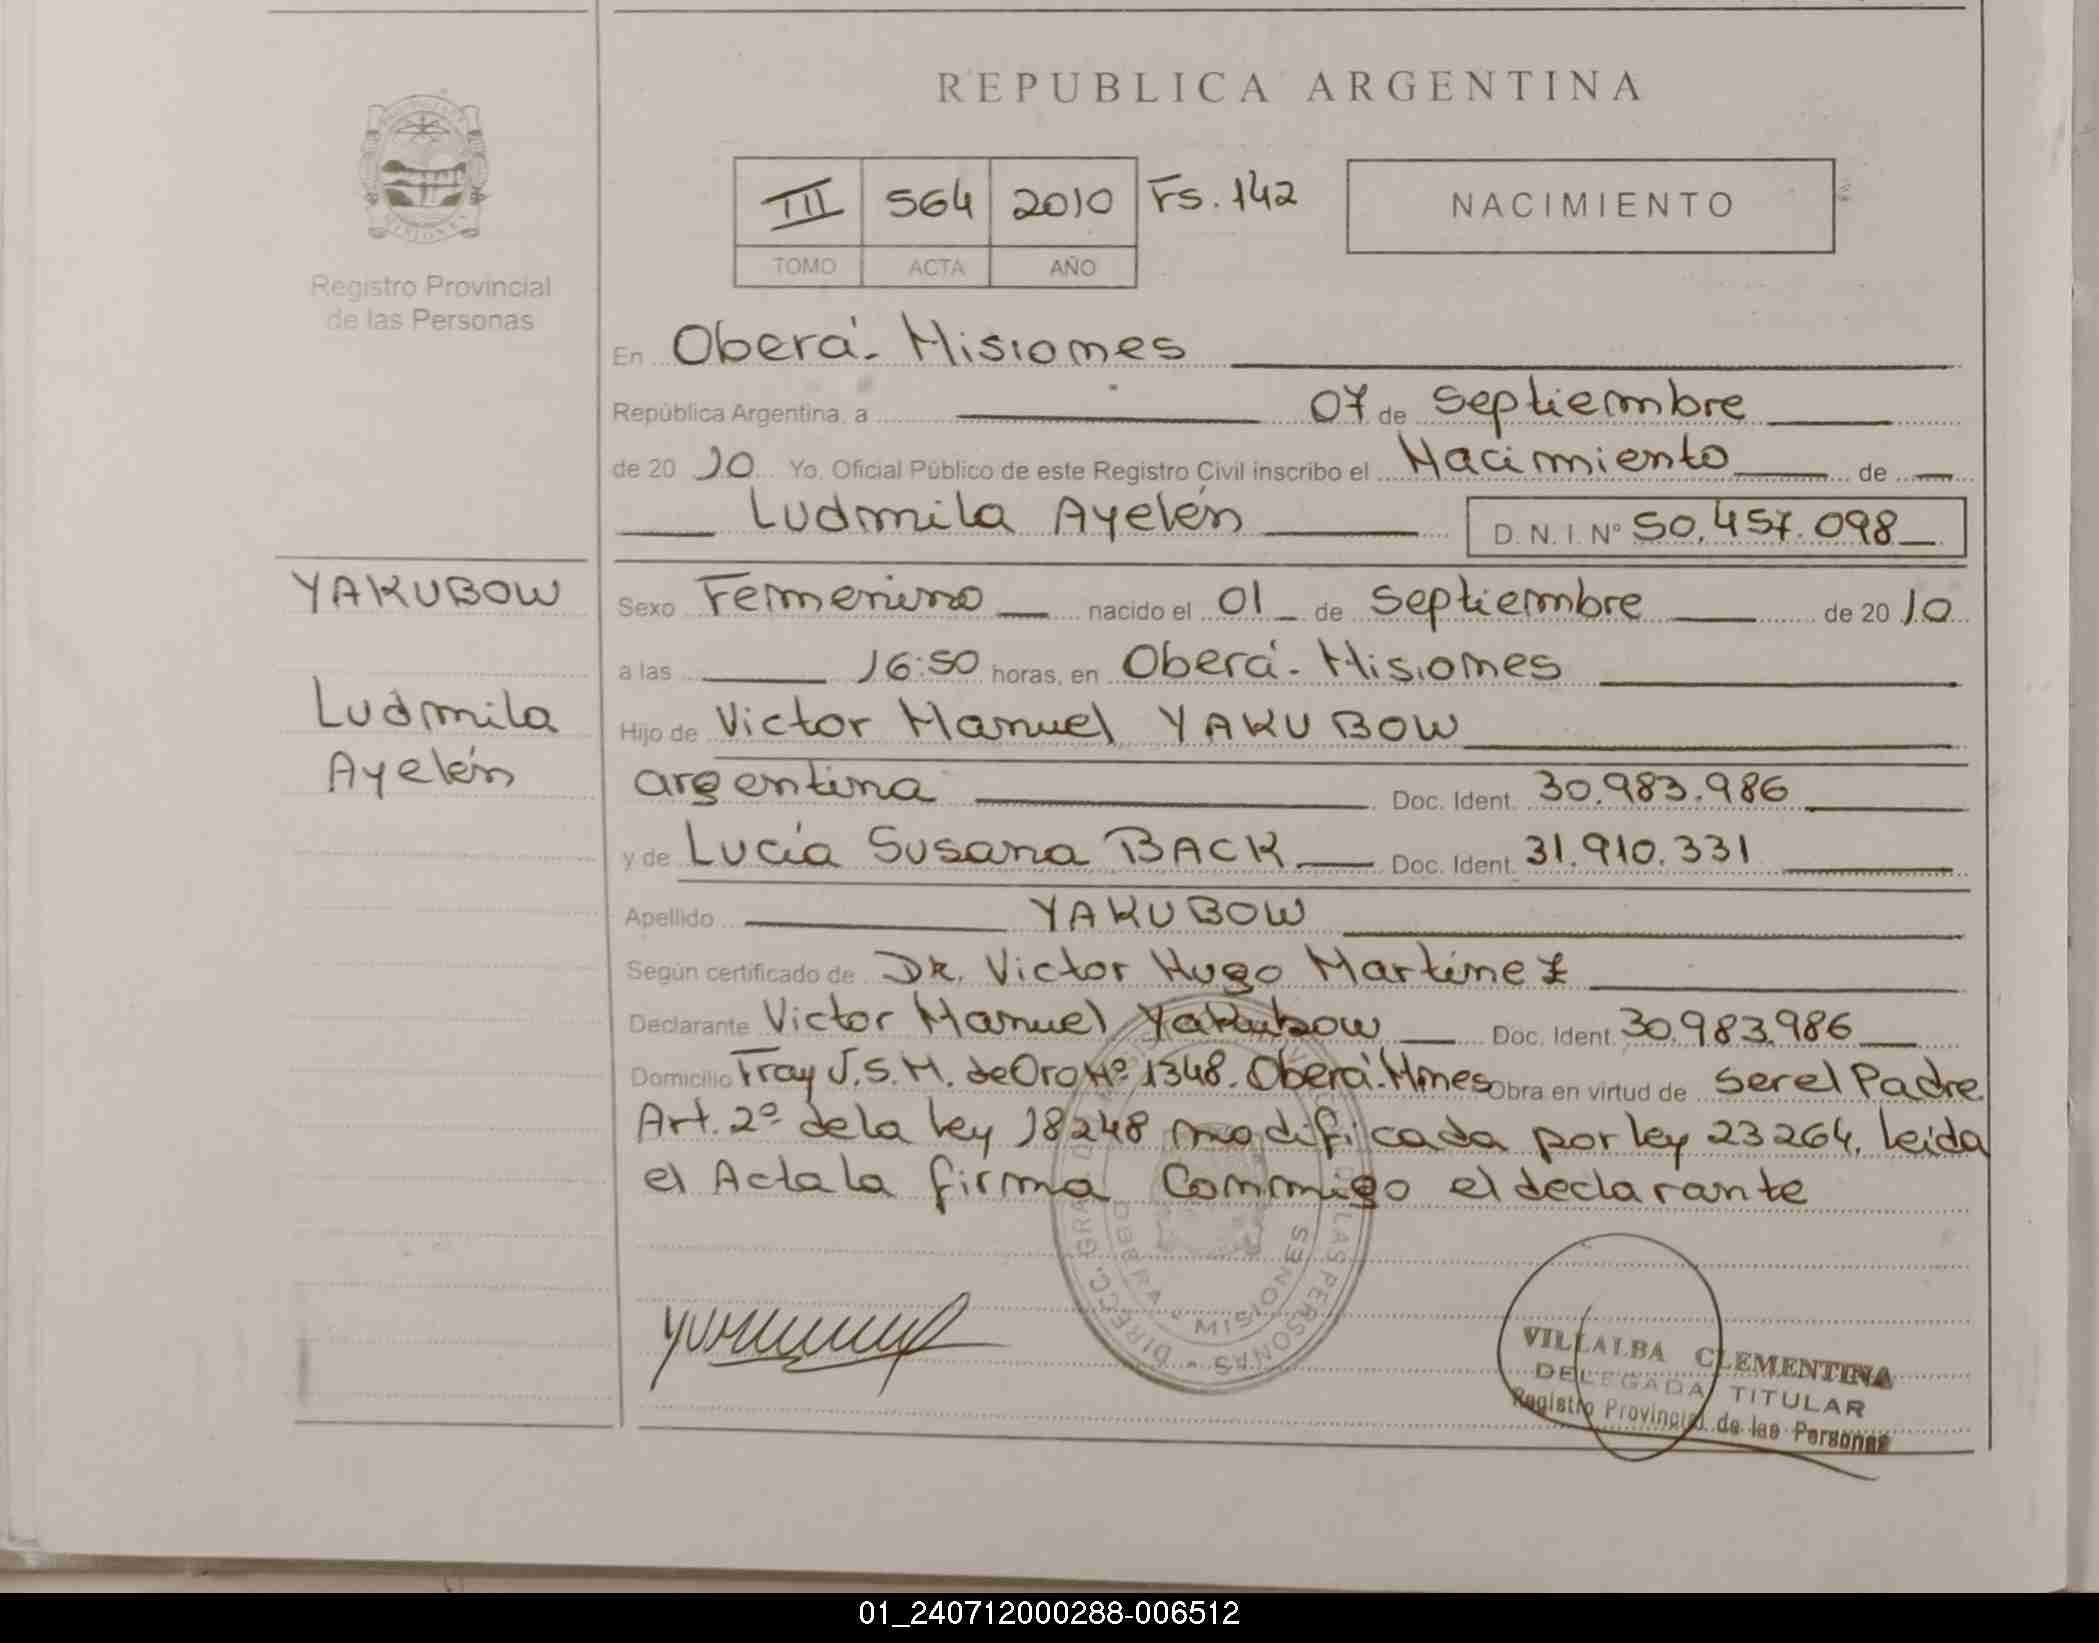 REPUBLICA ARGENTINA
III 564 2010 Fs. 142
TOMO ACTA AÑO
NACIMIENTO
Registro Provincial
de las Personas
En Oberá - Misiones
República Argentina, a 07 de Septiembre
de 20 10 Yo, Oficial Público de este Registro Civil inscribo el Nacimiento de
Ludmila Ayelén D.N.I. Nº 50.457.098
YAKUBOW
Ludmila
Ayelén
Sexo Femenino nacido el 01 de Septiembre de 20 10
a las 16:50 horas, en Oberá - Misiones
Hijo de Victor Manuel YAKUBOW
argentina Doc. Ident. 30.983.986
y de Lucía Susana BACK Doc. Ident. 31.910.331
Apellido YAKUBOW
Según certificado de DR. Victor Hugo Martinez
Declarante Victor Manuel Yakubow Doc. Ident. 30.983.986
Domicilio Fray J.S.M. de Oro Nº 1348. Oberá. Mnes Obra en virtud de Ser el Padre
Art. 2º de la ley 18248 modificada por ley 23264. leída
el Acta la firma Conmigo el declarante
DIRECC. GRAL. DE LAS PERSONAS
OBERA MISIONES
VILLALBA CLEMENTINA
DELEGADA TITULAR
Registro Provincial de las Personas
01_240712000288-006512